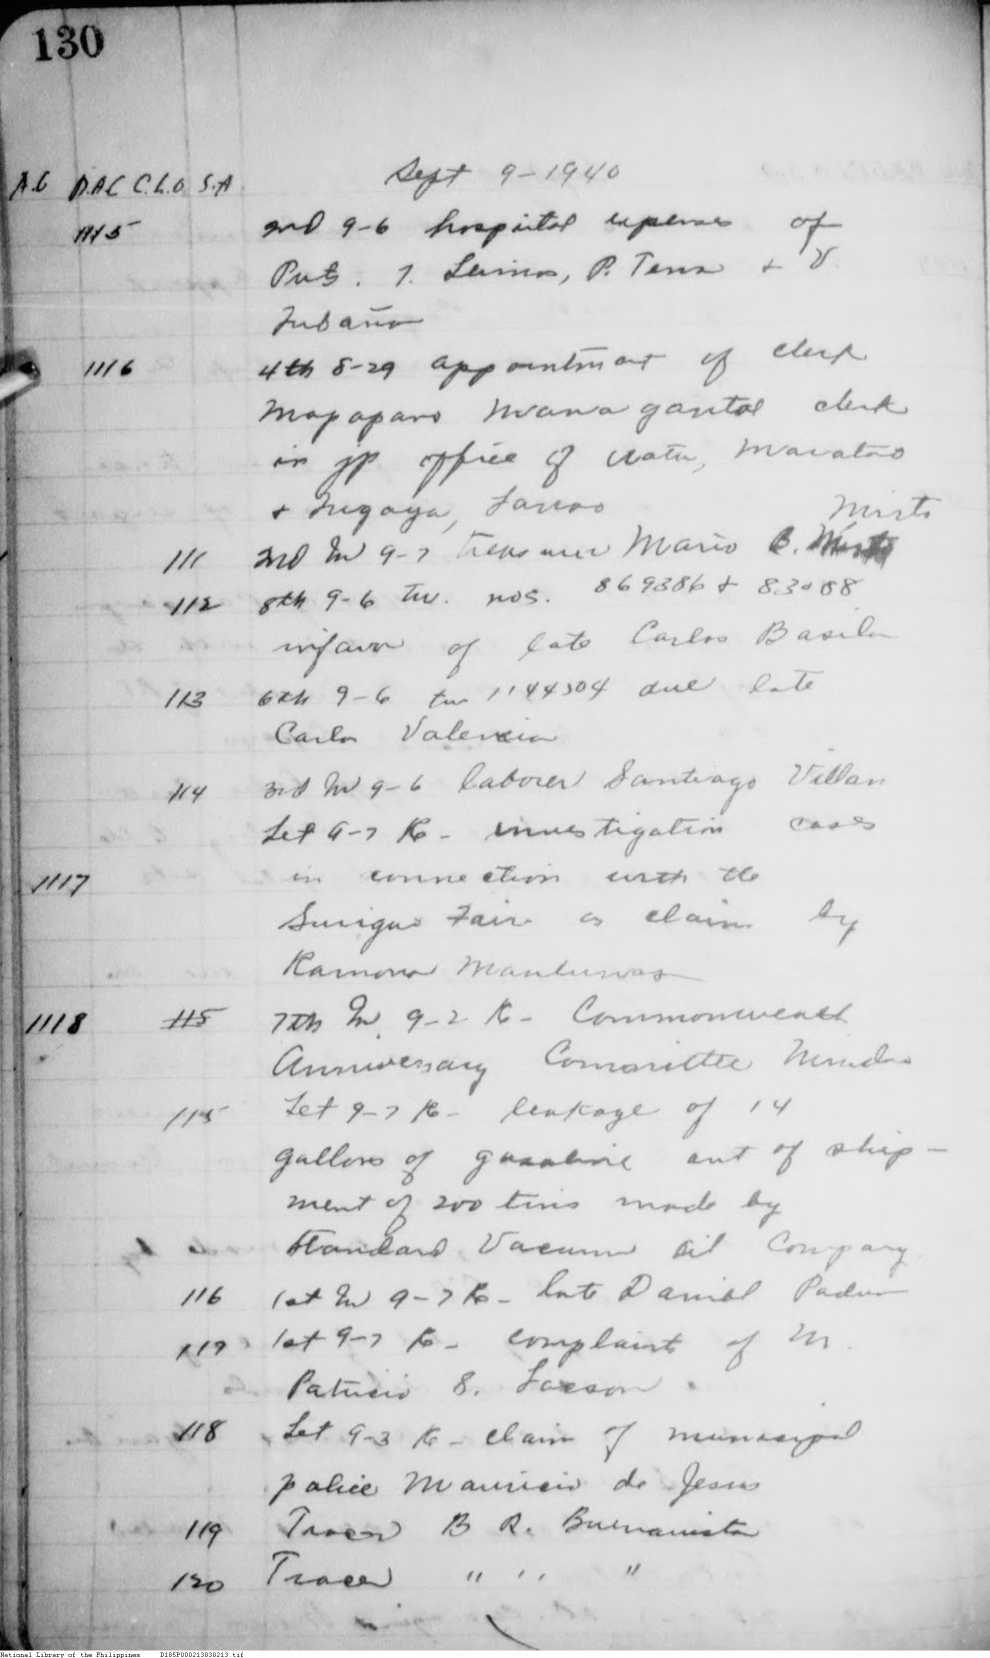 130
Sept 9-1940
A.C D.A.C C.L.O S.A
1115 2nd 9-6 hospital expenses of
Pvts. T. , P. Tena + V.
Tubaño
1116 4th 8-29 appointment of clerk
clerk
in jp office of Uatu, Maratao
+ Tugaya, Lanao
Mirto
111 2nd Ind 9-7 treasurer Mario C.
112 8th 9-6 tw. nos. 869386 + 83088
infavor of late Carlos Basila
113 6th 9-6 tw 1144304 due late
Carlos Valencia
114 3rd Ind 9-6 laborer Santiago Villan
Let 9-7 Re- investigation cases
1117 in connection with the
Surigao Fair as claim by
Ramona
1118 115 7th Ind 9-2 Re- Commonwealth
Anniversary Committee
115 Let 9-7 Re- leakage of 14
gallons of gasoline out of ship-
ment of 200 tins made by
Standard Vacuum Oil Company
116 1st Ind 9-7 Re- late Daniel
117 1st 9-7 Re- complaint of M.
Patricio S. Lacson
118 Let 9-3 Re- claim of municipal
police Mauricio de Jesus
119 Tracer B R. Buenavista
120 Tracer " " "
National Library of the Philippines D185P000213830213.tif